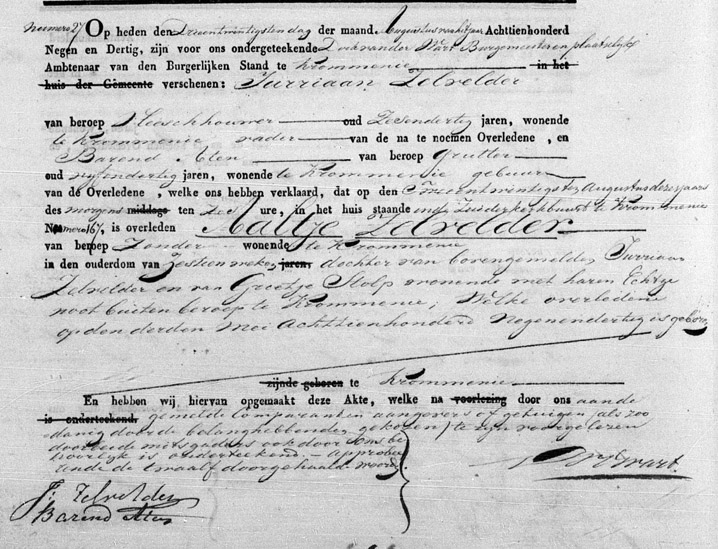 Numero 27 Op heden den Drieentwintigsten dag der maand Augustus van het jaar Achttienhonderd
Negen en Dertig, zijn voor ons ondergeteekende Dirk van der Wart Burgemeester en plaatselijk
Ambtenaar van den Burgerlijken Stand te Krommenie in het
huis der Gemeente verschenen: Jurriaan Zelvelder
van beroep Vleeschhouwer oud Zesendertig jaren, wonende
te Krommenie vader van de na te noemen Overledene, en
Barend Aten van beroep Grutter
oud vijfendertig jaren, wonende te Krommenie gebuur
van de Overledene, welke ons hebben verklaard, dat op den Tweeentwintigsten Augustus dezes jaars
des morgens middags ten Zes ure, in het huis staande en Zuiderkerkbuurt te Krommenie
Numero 167, is overleden Aaltje Zelvelder
van beroep Zonder wonende te Krommenie
in den ouderdom van Zestien weken jaren, dochter van bovengemelden Jurriaan
Zelvelder en van Grietje Stolp wonende met haren Echtge
noot buiten beroep te Krommenie; Welke overledene
op den derden Mei Achttienhonderd Negenendertig is geboren
zijnde geboren te Krommenie
En hebben wij hiervan opgemaakt deze Akte, welke na voorlezing door ons aan de
is onderteekend. gemelde Comparanten aangevers of getuigen (als zoo
danig door de belanghebbenden gekozen) te zijn voorgelezen
door beide mitsgaders ook door ons be
hoorlijk is onderteekend. – approbee
rende de twaalf doorgehaalde woorden
D v d Wart.
J: Zelvelder
Barend Aten